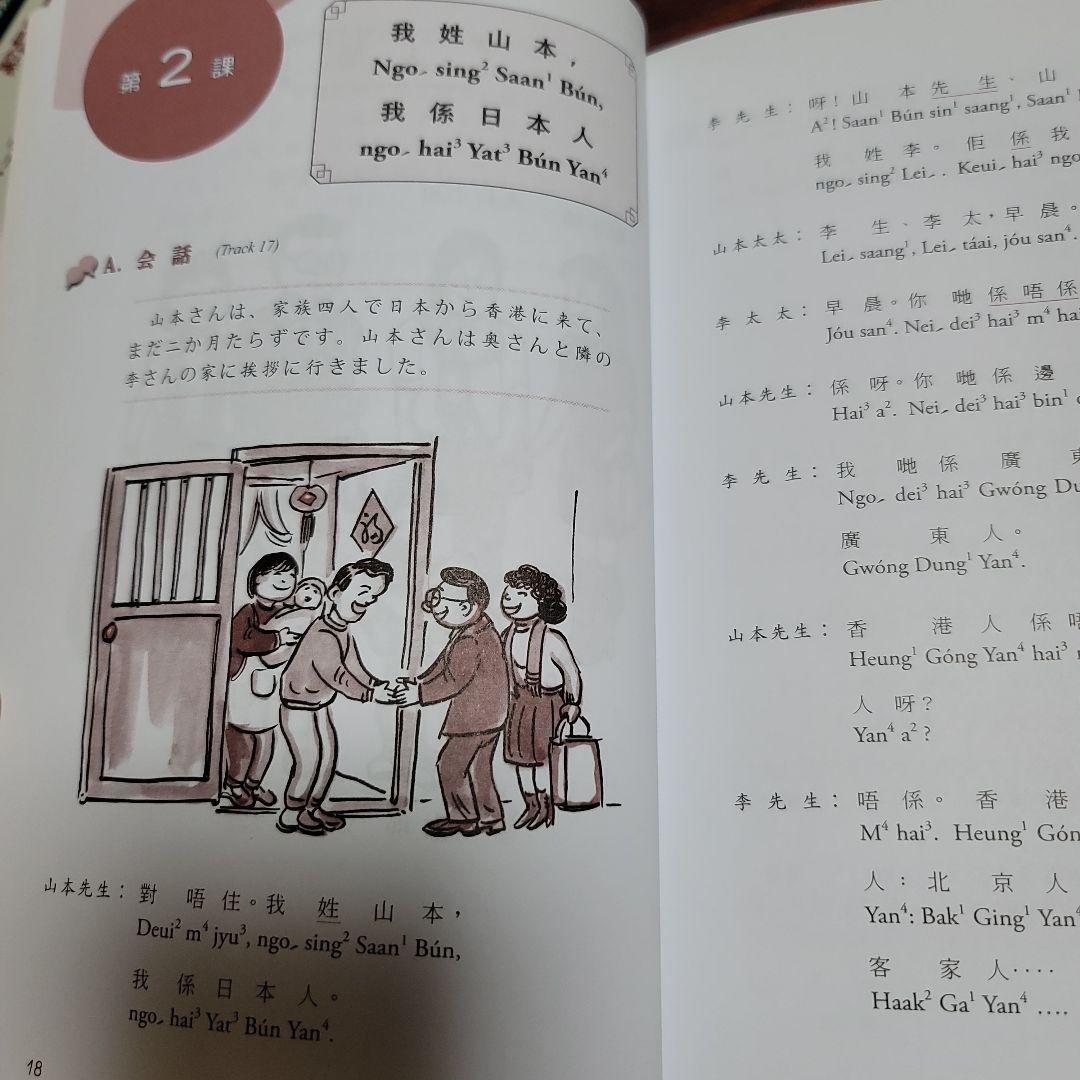 第2課
我姓山本，
Ngoˏ sing² Saan¹ Bún,
我係日本人
ngoˏ hai³ Yat³ Bún Yan⁴
A. 会話 (Track 17)
山本さんは、家族四人で日本から香港に来て、
まだ二か月たらずです。山本さんは奥さんと隣の
李さんの家に挨拶に行きました。
福
山本先生：對唔住。我姓山本，
Deui² m⁴ jyu³, ngoˏ sing² Saan¹ Bún,
我係日本人。
ngoˏ hai³ Yat³ Bún Yan⁴.
18
李先生：呀！山本先生、山
A²! Saan¹ Bún sin¹ saang¹, Saan¹
我姓李。佢係我
ngoˏ sing² Leiˏ. Keuiˏ hai³ ngo
山本太太：李生、李太，早晨。
Leiˏ saang¹, Leiˏ táai, jóu san⁴.
李太太：早晨。你哋係唔係
Jóu san⁴. Neiˏ dei³ hai³ m⁴ hai
山本先生：係呀。你哋係邊
Hai³ a². Neiˏ dei³ hai³ bin¹
李先生：我哋係廣東
Ngoˏ dei³ hai³ Gwóng Du
廣東人。
Gwóng Dung¹ Yan⁴.
山本先生：香港人係唔
Heung¹ Góng Yan⁴ hai³
人呀？
Yan⁴ a²?
李先生：唔係。香港
M⁴ hai³. Heung¹ Gón
人：北京人
Yan⁴: Bak¹ Ging¹ Yan⁴
客家人‥‥
Haak² Ga¹ Yan⁴ ....